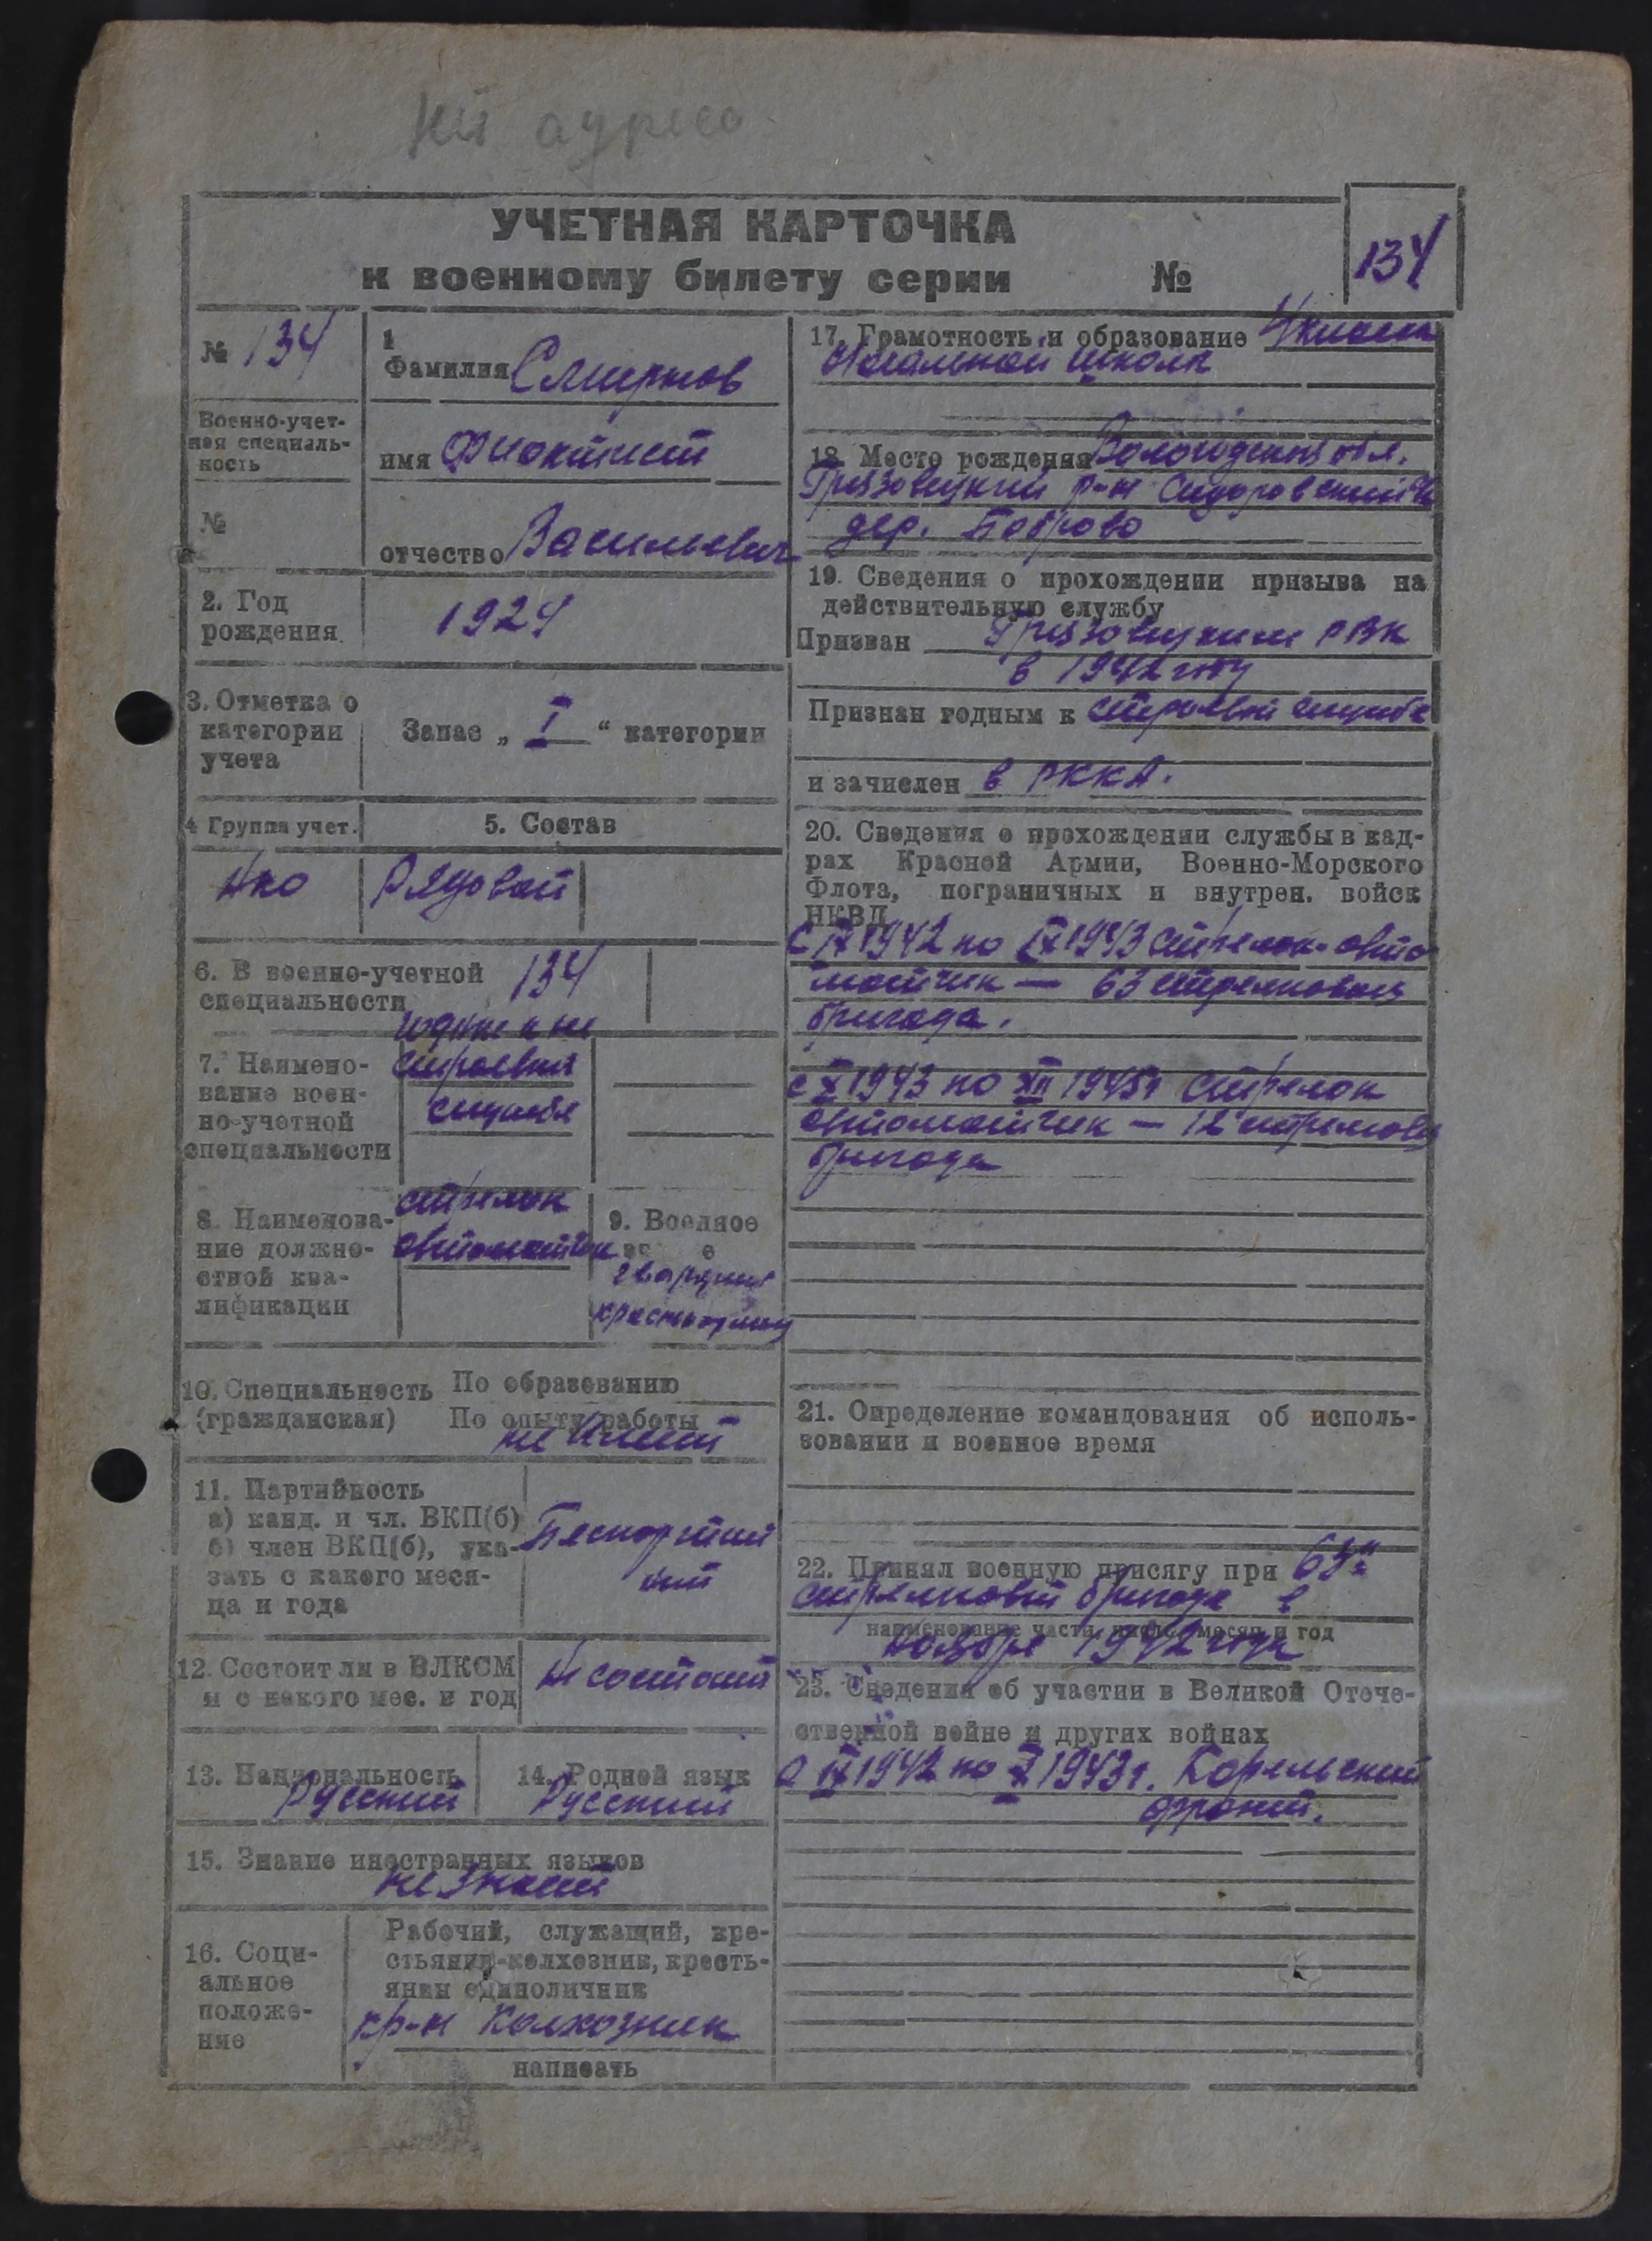 УЧЕТНАЯ КАРТОЧКА
к военному билету серии №
134
№ 134
Военно-учет-
ная специаль-
ность
№
1
Фамилия Смирнов
имя Фиоктист
отчество Васильевич
2. Год
рождения
1924
3. Отметка о
категории
учета
Запас „ I “ категории
4 Группа учет.
5. Состав
Нко
Рядовой
6. В военно-учетной
специальности
134
7. Наимено-
вание воен-
но-учетной
специальности
годные к не
строевой
службе
8. Наименова-
ние должно-
стной ква-
лификации
стрелок
автоматчик
9. Военное
гвардии
10. Специальность
(гражданская)
По образованию
По опыту работы
не имеет
11. Партийность
а) канд. и чл. ВКП(б)
б) член ВКП(б), ука-
зать с какого меся-
ца и года
Беспартий
ный
12. Состоит ли в ВЛКСМ
и с какого мес. и год
Не состоит
13. Национальность
Русский
14. Родной язык
Русский
15. Знание иностранных языков
не знает
16. Соци-
альное
положе-
ние
Рабочий, служащий, кре-
стьянин-колхозник, кресть-
янин единоличник
кр-н Колхозник
написать
17. Грамотность и образование 4 класса
Начальной школы
18. Место рождения Вологодская обл.
Грязовецкий р-н Сидоровский
дер. Боброво
19. Сведения о прохождении призыва на
действительную службу
Призван Грязовецким РВК
в 1942 году
Признан годным к строевой службе
и зачислен в РККА.
20. Сведения о прохождении службы в кад-
рах Красной Армии, Военно-Морского
Флота, пограничных и внутрен. войск
НКВД
с IX 1942 по IX 1943 стрелок-авто
матчик — 63 стрелковая
бригада.
с X 1943 по XII 1945г стрелок
автоматчик — 12 стрелковая
бригада
21. Определение командования об исполь-
зовании и военное время
22. Принял военную присягу при 63й
стрелковой бригаде в
наименование части, число, месяц и год
ноябре 1942 года
23. Сведения об участии в Великой Отече-
ственной войне и других войнах
с IX 1942 по X 1943г. Корельский
фронт.